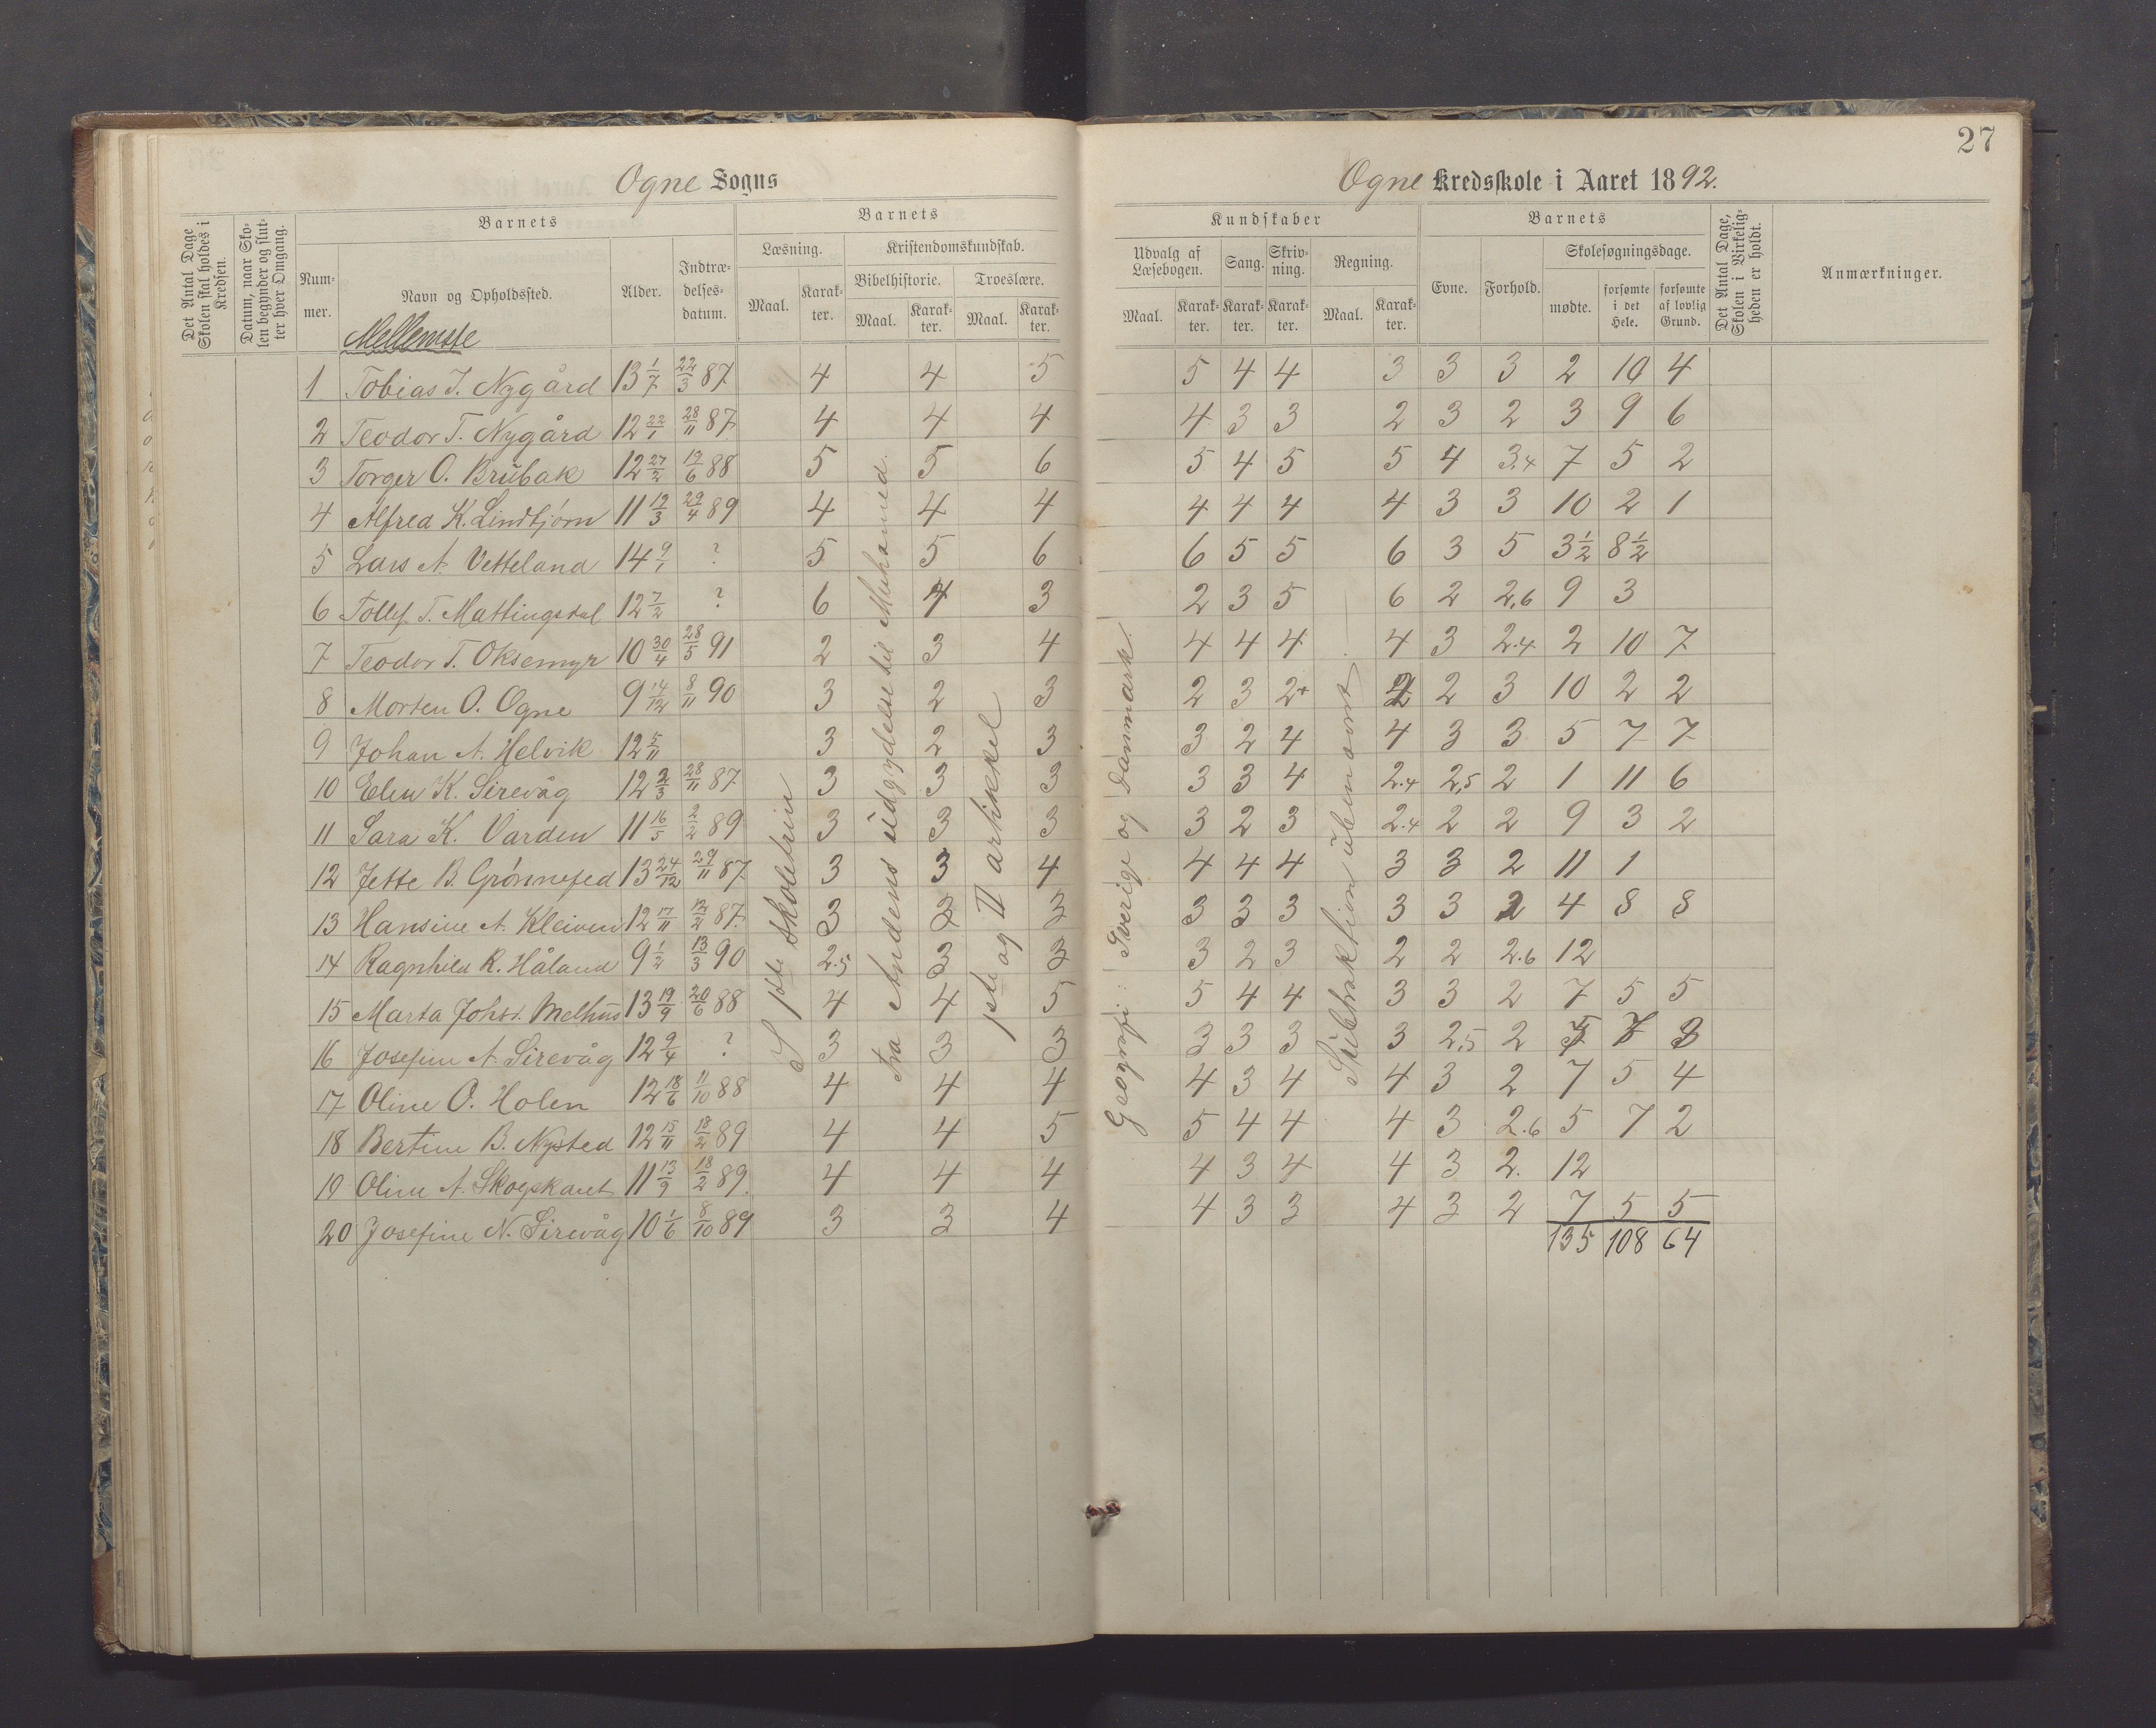 27
Ogne Sogns
Ogne Kredsskole i Aaret 1892.
Det Antal Dage Skolen skal holdes i Kredsen.
Datum, naar Skolen begynder og slutter hver Omgang.
Barnets
Nummer.
Navn og Opholdssted.
Alder.
Indtrædelsesdatum.
Barnets
Læsning.
Maal.
Karakter.
Kristendomskundskab.
Bibelhistorie.
Maal.
Karakter.
Troeslære.
Maal.
Karakter.
Kundskaber
Udvalg af Læsebogen.
Maal.
Karakter.
Sang.
Karakter.
Skrivning.
Karakter.
Regning.
Maal.
Karakter.
Barnets
Evne.
Forhold.
Skolesøgningsdage.
mødte.
forsømte i det Hele.
forsømte af lovlig Grund.
Det Antal Dage, Skolen i Virkeligheden er holdt.
Anmærkninger.
Mellemste
1 Tobias T. Nygård 13 1/7 22/3 87 4 4 5 5 4 4 3 3 3 2 10 4
2 Teodor T. Nygård 12 22/1 28/11 87 4 4 4 4 3 3 2 3 2 3 9 6
3 Torger O. Brŭbak 12 27/2 19/6 88 5 5 6 5 4 5 5 4 3.4 7 5 2
4 Alfred K. Lindtjørn 11 19/3 29/4 89 4 4 4 4 4 4 4 3 3 10 2 1
5 Lars A. Vetteland 14 9/1 ? 5 5 6 6 5 5 6 3 5 3 1/2 8 1/2
6 Tollef T. Mattingsdal 12 7/2 ? 6 4 3 2 3 5 6 2 2,6 9 3
7 Teodor T. Oksemyr 10 30/4 28/5 91 2 3 4 4 4 4 4 3 2.4 2 10 7
8 Morten O. Ogne 9 14/12 8/11 90 3 2 3 2 3 2+ 2 2 3 10 2 2
9 Johan A. Helvik 12 5/11 3 2 3 3 2 4 4 3 3 5 7 7
10 Elen K. Sirevåg 12 2/3 28/11 87 3 3 3 3 3 4 2.4 2,5 2 1 11 6
11 Sara K. Varden 11 16/5 2/2 89 3 3 3 3 2 3 2.4 2 2 9 3 2
12 Jette B. Grønnefed 13 24/12 29/11 87 3 3 4 4 4 4 3 3 2 11 1
13 Hansine A. Kleiven 12 17/11 12/2 87. 3 3 3 3 3 3 3 3 2 4 8 8
14 Ragnhild R. Håland 9 1/2 13/3 90 2.5 3 3 3 2 3 2 2 2.6 12
15 Marta Johs. Melhus 13 19/9 20/6 88 4 4 5 5 4 4 3 3 2 7 5 5
16 Josefine A. Sirevåg 12 9/4 ? 3 3 3 3 3 3 3 2,5 2 5 7 3
17 Oline O. Holen 12 18/6 11/10 88 4 4 4 4 3 4 4 3 2 7 5 4
18 Bertine B. Nysted 12 15/11 18/2 89 4 4 5 5 4 4 4 3 2.6 5 7 2
19 Oline A. Skogskant 11 13/9 18/2 89. 4 4 4 4 3 4 4 3 2. 12
20 Josefine N. Sirevåg 10 1/6 8/10 89 3 3 4 4 3 3 4 3 2 7 5 5
135 108 64
I 1ste Skoletrin
Fra Åndens ŭdgydelse til Muhamed.
1ste og II artikkel
Geografi: Sverige og Danmark.
Sŭbtraktion ŭbenævnt